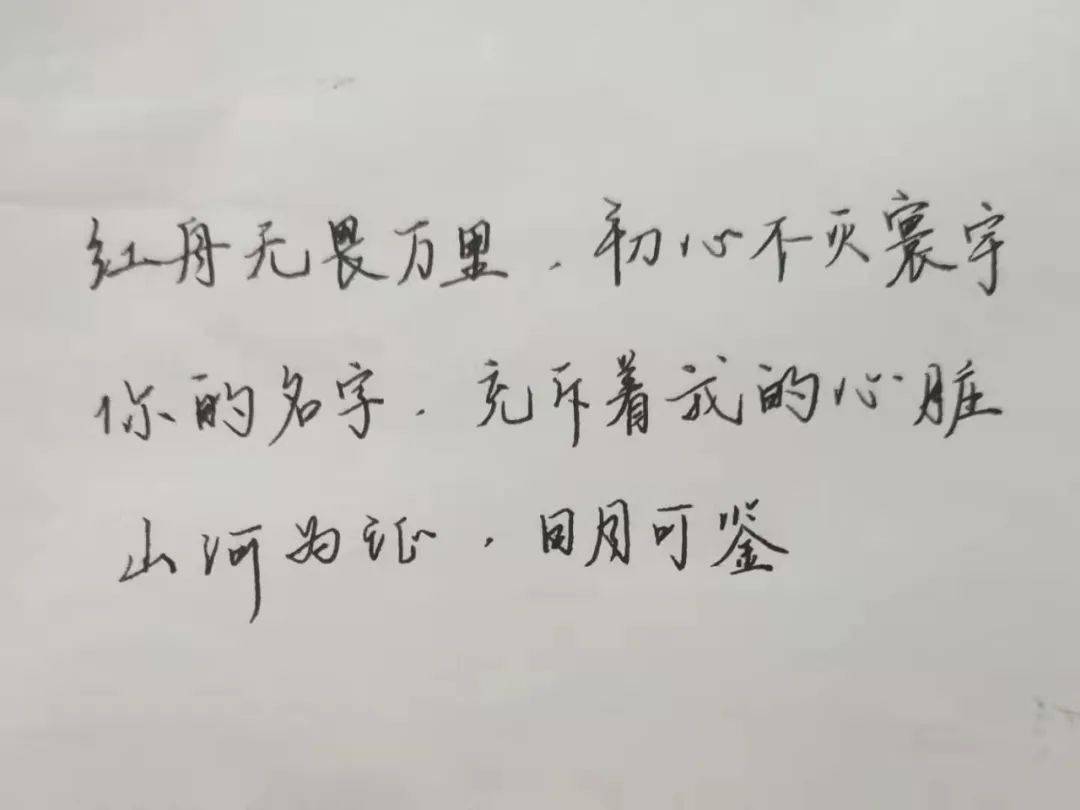 红舟无畏万里，初心不灭寰宇
你的名字，充斥着我的心脏
山河为证，日月可鉴